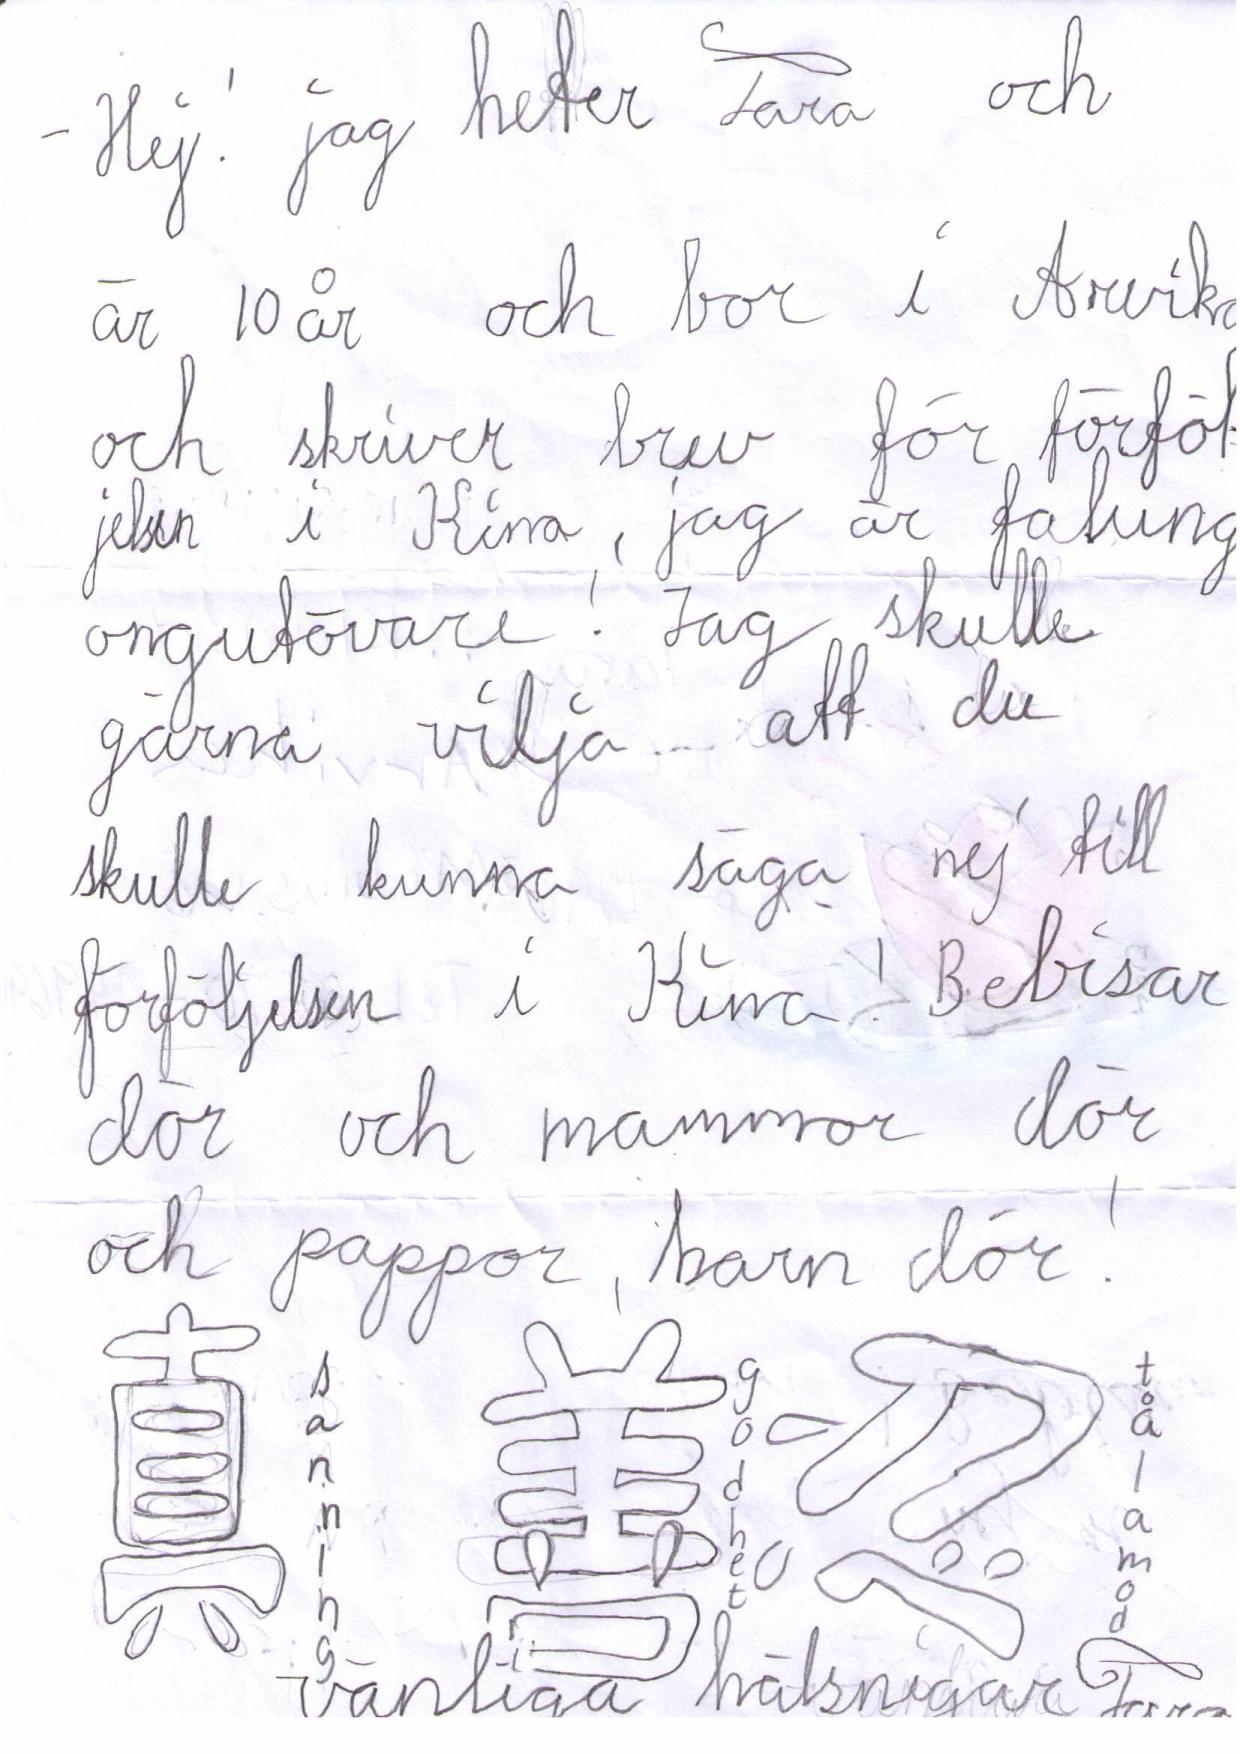 - Hej! jag heter Tara och
är 10 år och bor i Arvika
och skriver brev för förföl-
jelsen i Kina, jag är falung
ongutövare! Jag skulle
gärna vilja att du
skulle kunna säga nej till
förföljelsen i Kina! Bebisar
dör och mammor dör
och pappor, barn dör!
真 sanning 善 godhet 忍 tålamod
vänliga hälsnigar Tara